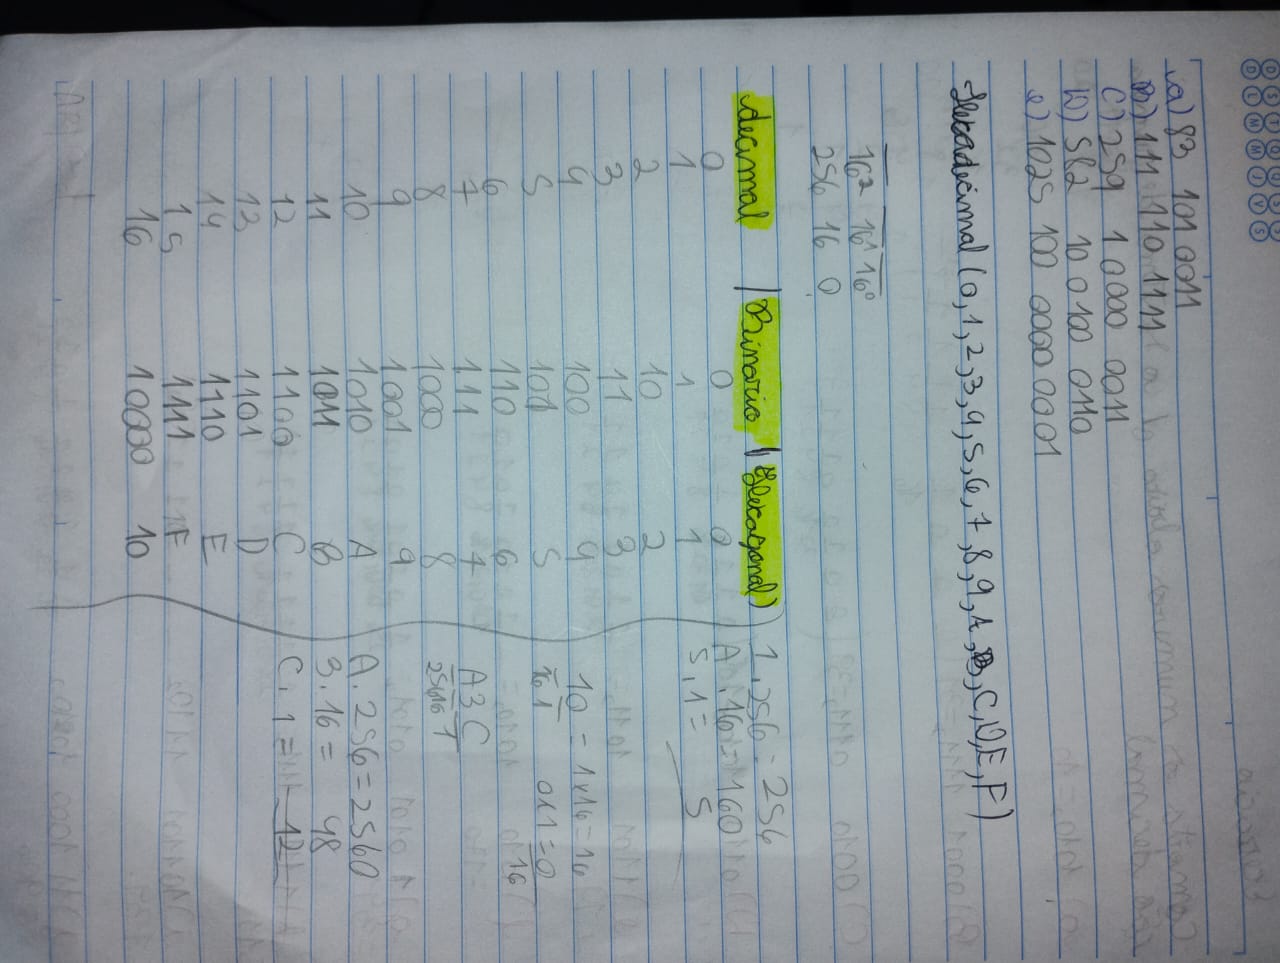 D S T Q Q S S
D L M M J V S
a) 83 101 0011
b) 111 110 1111
c) 259 1 0000 0011
d) 582 10 0100 0110
e) 1025 100 0000 0001
Hexadecimal (0,1,2,3,4,5,6,7,8,9,A,B,C,D,E,F)
16² 16¹ 16⁰
256 16 0
decimal | Binario | Hexagonal)
0 0 0
1 1 1
2 10 2
3 11 3
4 100 4
5 101 5
6 110 6
7 111 7
8 1000 8
9 1001 9
10 1010 A
11 1011 B
12 1100 C
13 1101 D
14 1110 E
15 1111 F
16 10000 10
1.256 = 256
A.16 = 160
5.1 = 5
10 = 1x16 = 16
16 1 0x1 = 0
16
A3C
256 16 1
A.256 = 2560
3.16 = 48
C.1 = 12